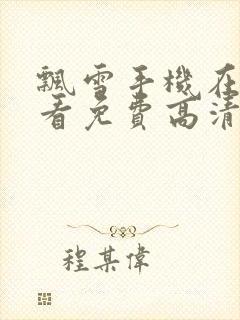 飄雪手機在
看免費高清
程某偉